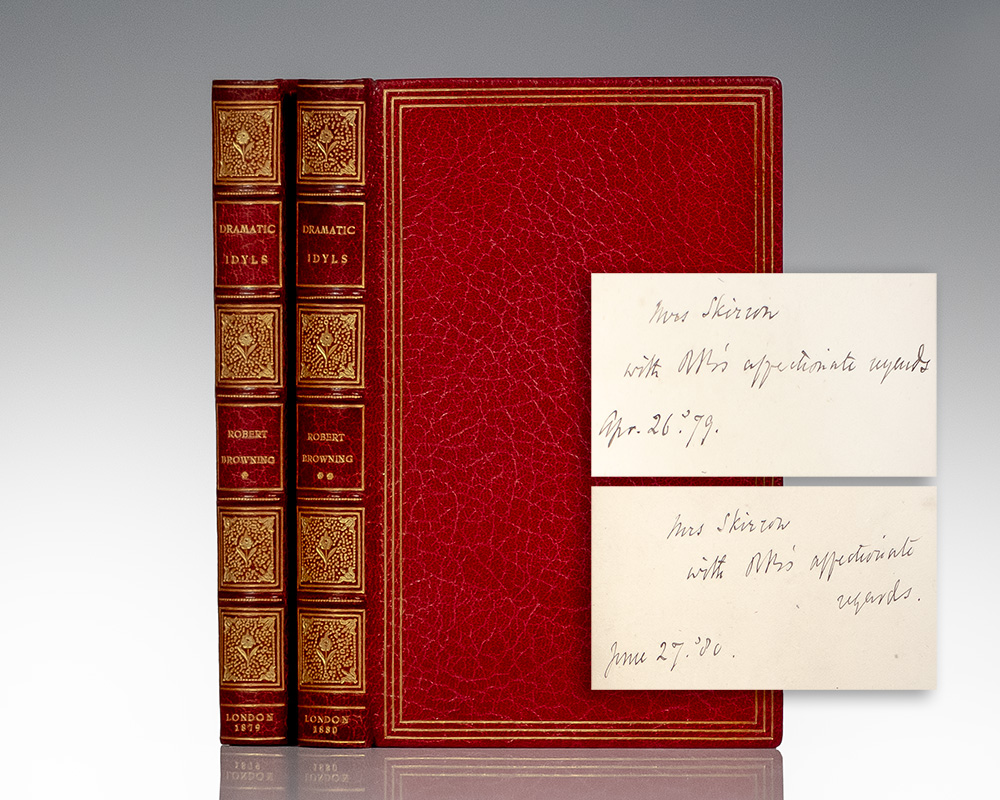 DRAMATIC
IDYLS
ROBERT
BROWNING
LONDON
1879
DRAMATIC
IDYLS
ROBERT
BROWNING
LONDON
1880
Mrs Skirrow
with RB's affectionate regards
Apr. 26. '79.
Mrs Skirrow
with RB's affectionate
regards.
June 27. '80.